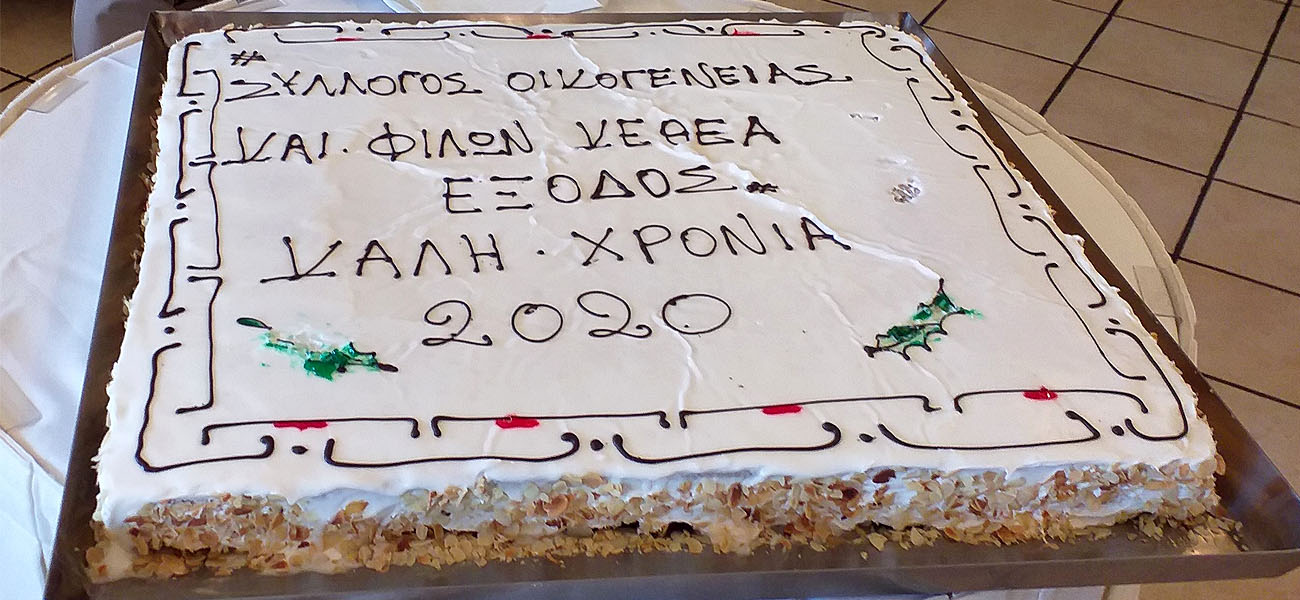 "ΣΥΛΛΟΓΟΣ ΟΙΚΟΓΕΝΕΙΑΣ
ΚΑΙ. ΦΙΛΩΝ ΚΕΘΕΑ
ΕΞΟΔΟΣ"
ΚΑΛΗ · ΧΡΟΝΙΑ
2020